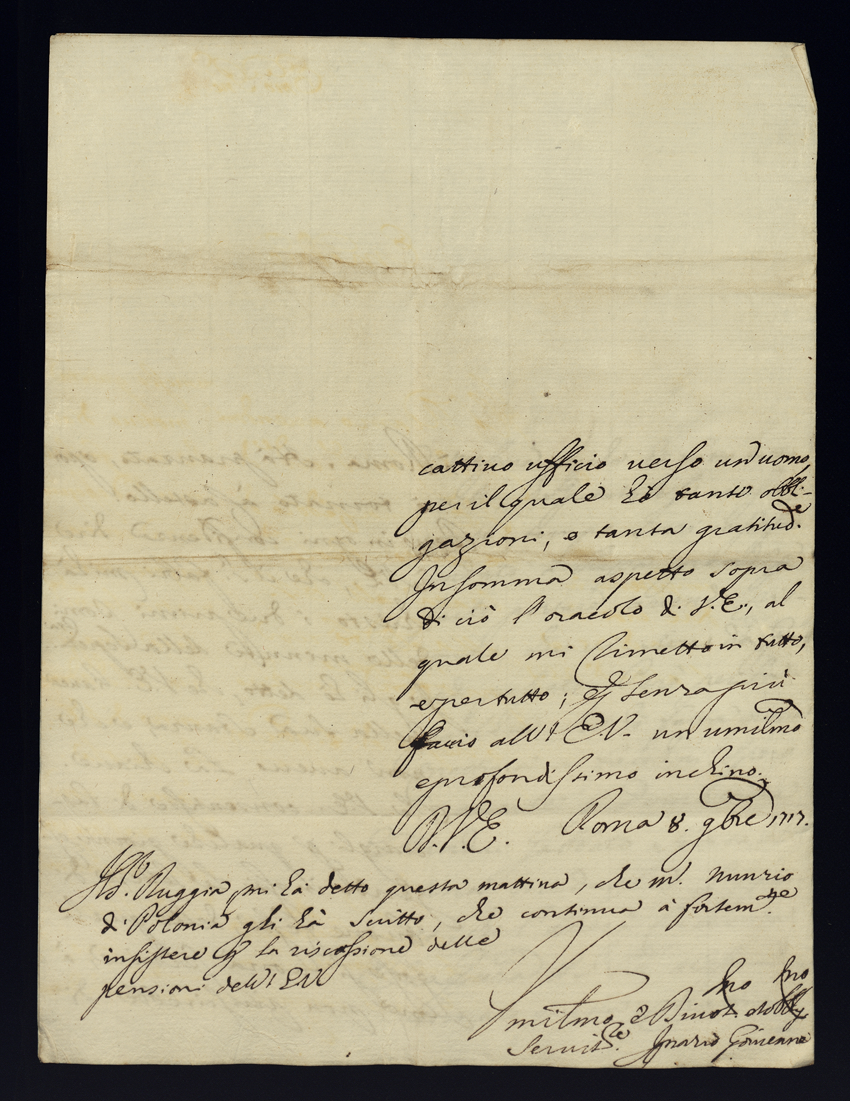 cattivo ufficio verso un'uomo,
per il quale hò tante obbli-
gazioni, e tanta gratitud.e
Insomma aspetto sopra
di ciò l'oracolo di V.E., al
quale mi rimetto in tutto,
e per tutto; et senza più
faccio all' E.V. un umilmo
e profondissimo inchino.
D.V.E. Roma 8. 9bre 1717.
Ruggia mi hà detto questa mattina, che m. Nunzio
di Polonia gli hà scritto, che continua à fortem.te
insistere p la riscossione delle
pensioni dell' E.V.
Umilmo e Divot. et obb
Servit.re